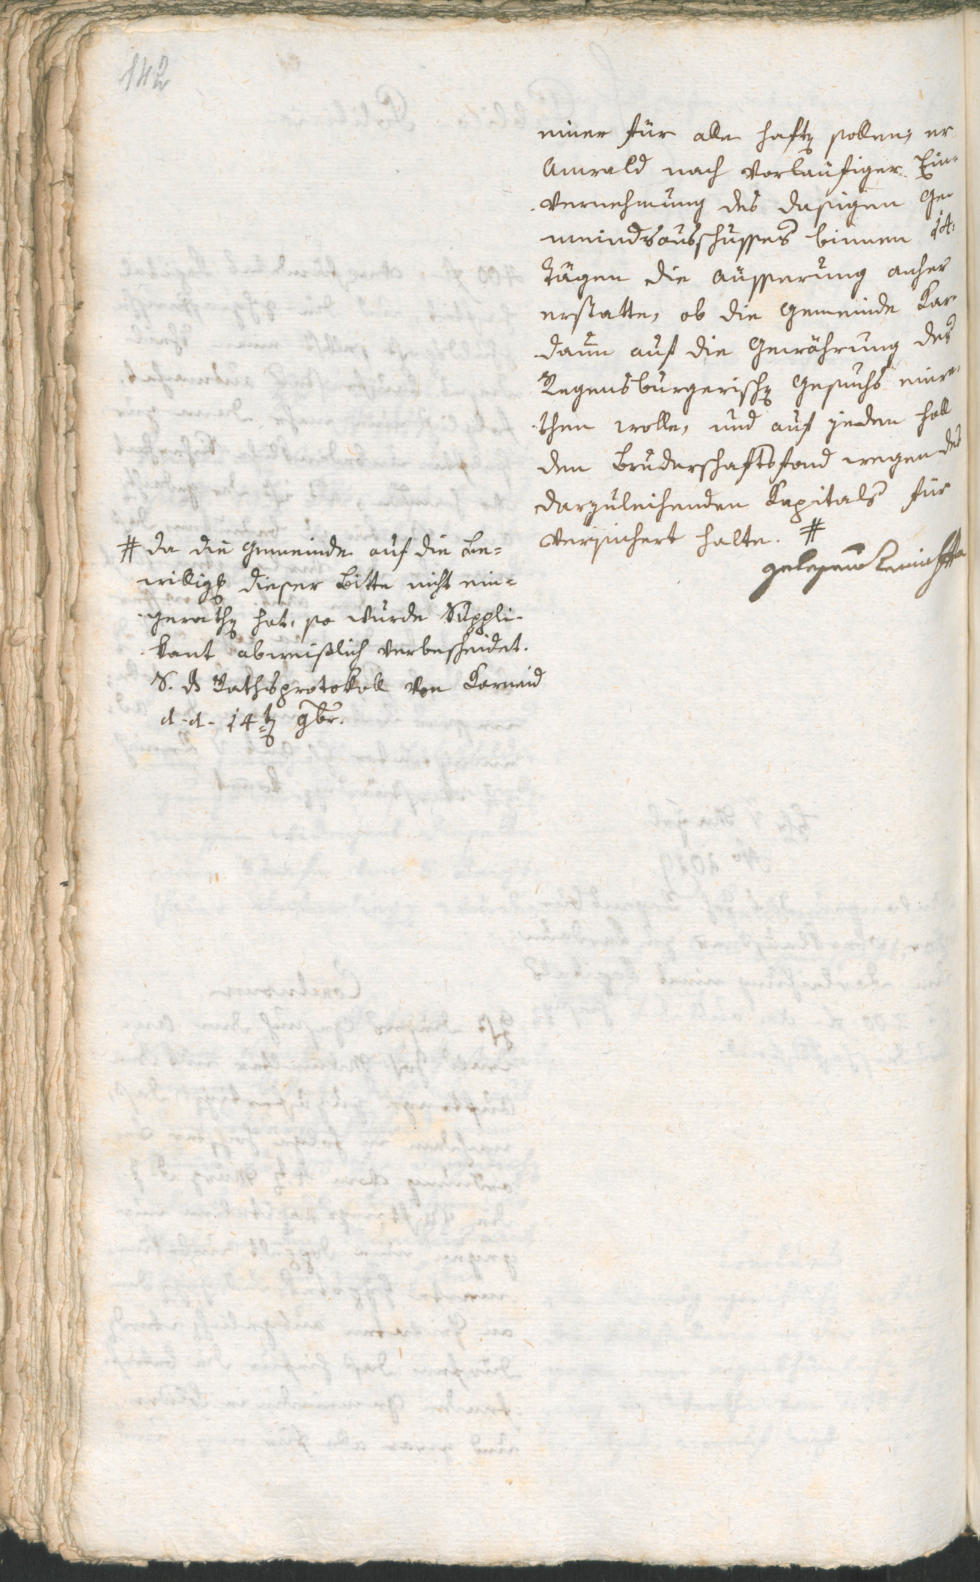 142
einer für alle haftẽ sollen, er
Anwald nach vorläufiger Ein-
vernehmung des dasigen Ge-
meindsausschusses binnen 14.
tägen die Aüsserung anher
erstatte, ob die Gemeinde Kar-
daun auf die Gewährung des
Regensburgerischẽ Gesuchs einra-
then wolle, und auf jeden Fall
den Bruderschaftsfond wegen des
darzuleihenden Kapitals für
versichert halte. #
# da die Gemeinde auf die Be-
willigg dieser Bitte nicht ein-
gerathẽ hat, so wurde Suppli-
kant abweißlich verbescheidet.
S. ds Rathsprotokoll von Karneid
d.d. 14tẽ 9br.